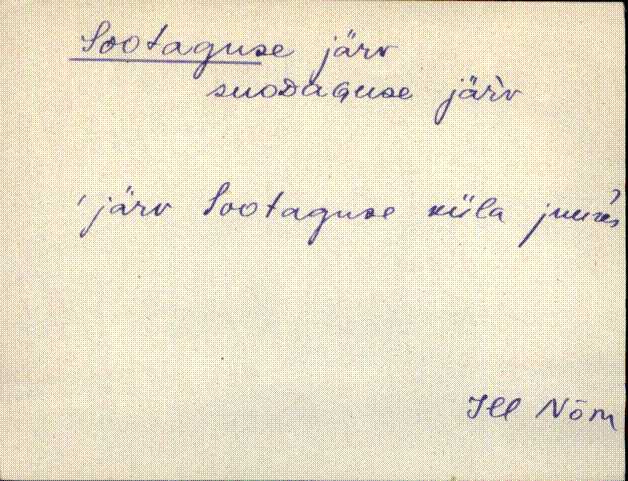 Sootaguse järv
suoDaGuse järv
'järv Sootaguse küla juures'
Ill Nõm